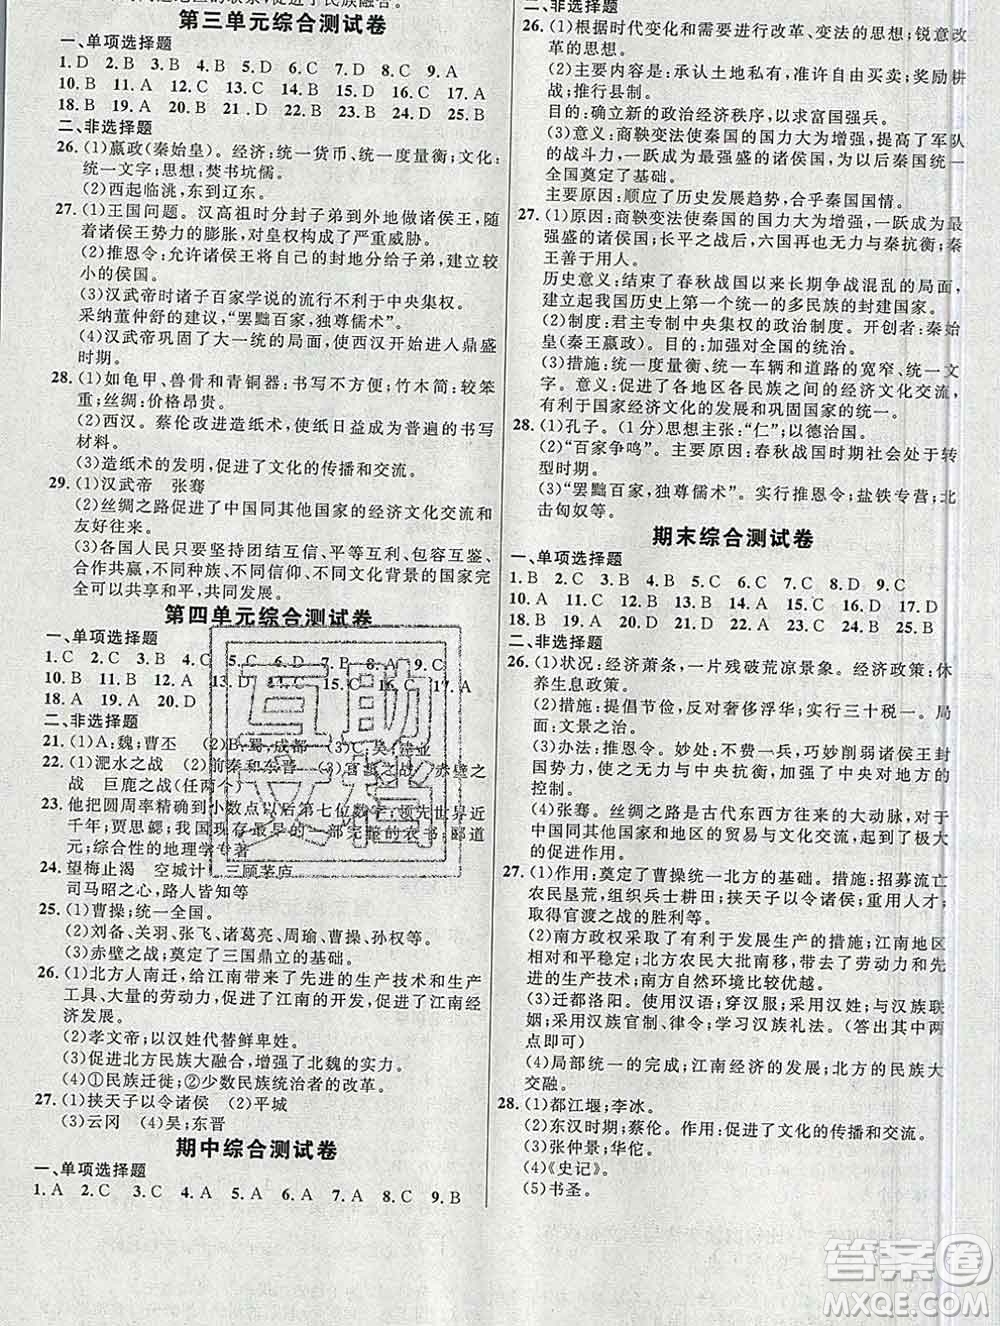 第三单元综合测试卷
一、单项选择题
1. D 2. B 3. B 4. A 5. D 6. B 7. C 8. C 9. A
10. B 11. A 12. C 13. C 14. B 15. A 16. B 17. C
18. B 19. A 20. B 21. D 22. D 23. B 24. D 25. B
二、非选择题
26. (1)嬴政(秦始皇)。经济:统一货币、统一度量衡;文化:
统一文字;思想:焚书坑儒。
(2)西起临洮,东到辽东。
27. (1)王国问题。汉高祖时分封子弟到外地做诸侯王,随
着诸侯王势力的膨胀,对皇权构成了严重威胁。
(2)推恩令:允许诸侯王将自己的封地分给子弟,建立较
小的侯国。
(3)汉武帝时诸子百家学说的流行不利于中央集权。
采纳董仲舒的建议,“罢黜百家,独尊儒术”。
(4)汉武帝巩固了大一统的局面,使西汉开始进入鼎盛
时期。
28. (1)如龟甲、兽骨和青铜器:书写不方便;竹木简:较笨
重;丝绸:价格昂贵。
(2)西汉。蔡伦改进造纸术,使纸日益成为普遍的书写
材料。
(3)造纸术的发明,促进了文化的传播和交流。
29. (1)汉武帝 张骞
(2)丝绸之路促进了中国同其他国家的经济文化交流和
友好往来。
(3)各国人民只要坚持团结互信、平等互利、包容互鉴、
合作共赢,不同种族、不同信仰、不同文化背景的国家完
全可以共享和平,共同发展。
第四单元综合测试卷
一、单项选择题
1. C 2. C 3. B 4. C 5. C 6. D 7. D 8. A 9. C
10. B 11. B 12. C
18. A 19. A 20. D
二、非选择题
21. (1)A;魏;曹丕 (2)B;蜀;成都 (3)C;吴;建业
22. (1)淝水之战 (2)前秦和东晋 (3)官渡之战 赤壁之
战 巨鹿之战(任两个)
23. 他把圆周率精确到小数点以后第七位数字,领先世界近
千年;贾思勰;我国现存最早的一部完整的农书;郦道
元;综合性的地理学专著
24. 望梅止渴 空城计 三顾茅庐
司马昭之心,路人皆知等
25. (1)曹操;统一全国。
(2)刘备、关羽、张飞、诸葛亮、周瑜、曹操、孙权等。
(3)赤壁之战;奠定了三国鼎立的基础。
26. (1)北方人南迁,给江南带来了先进的生产技术和生产
工具、大量的劳动力,促进了江南的开发,促进了江南经
济发展。
(2)孝文帝;以汉姓代替鲜卑姓。
(3)促进北方民族大融合,增强了北魏的实力。
(4)①民族迁徙;②少数民族统治者的改革。
27. (1)挟天子以令诸侯 (2)平城
(3)云冈 (4)吴;东晋
期中综合测试卷
一、单项选择题
1. A 2. C 3. C 4. A 5. A 6. A 7. B 8. C 9. B
二、非选择题
26. (1)根据时代变化和需要进行改革、变法的思想;锐意改
革的思想。
(2)主要内容是:承认土地私有,准许自由买卖;奖励耕
战;推行县制。
目的:确立新的政治经济秩序,以求富国强兵。
(3)意义:商鞅变法使秦国的国力大为增强,提高了军队
的战斗力,一跃成为最强盛的诸侯国,为后来秦国统一
全国奠定了基础。
主要原因:顺应了历史发展趋势,合乎秦国国情。
27. (1)原因:商鞅变法使秦国的国力大为增强,一跃成为最
强盛的诸侯国;长平之战后,六国再也无力与秦抗衡;秦
王善于用人。
历史意义:结束了春秋战国以来长期争战混乱的局面,
建立起我国历史上第一个统一的多民族的封建国家。
(2)制度:君主专制中央集权的政治制度。开创者:秦始
皇(秦王嬴政)。目的:加强对全国的统治。
(3)措施:统一度量衡、统一车辆和道路的宽窄、统一文
字。意义:促进了各地区各民族之间的经济文化交流,
有利于国家经济文化的发展和巩固国家的统一。
28. (1)孔子。(1 分)思想主张:“仁”;以德治国。
(2)“百家争鸣”。根本原因:春秋战国时期社会处于转
型时期。
(3)“罢黜百家,独尊儒术”。实行推恩令;盐铁专营;北
击匈奴等。
期末综合测试卷
一、单项选择题
1. B 2. C 3. B 4. A 5. B 6. C 7. C 8. D 9. C
10. A 11. D 12. C 13. D 14. A 15. D 16. C 17. C
18. B 19. A 20. D 21. C 22. D 23. C 24. B 25. B
二、非选择题
26. (1)状况:经济萧条,一片残破荒凉景象。经济政策:休
养生息政策。
(2)措施:提倡节俭,反对奢侈浮华;实行三十税一。局
面:文景之治。
(3)办法:推恩令。妙处:不费一兵,巧妙削弱诸侯王封
国势力,使之无力与中央抗衡,加强了中央对地方的
控制。
(4)张骞。丝绸之路是古代东西方往来的大动脉,对于
中国同其他国家和地区的贸易与文化交流,起到了极大
的促进作用。
27. (1)作用:奠定了曹操统一北方的基础。措施:招募流亡
农民垦荒,组织兵士耕田;挟天子以令诸侯;重用人才;
取得官渡之战的胜利等。
(2)南方政权采取了有利于发展生产的措施;江南地区
相对和平稳定;北方农民大批南移,带来了劳动力和先
进的生产技术;南方自然环境比较优越。
(3)迁都洛阳。使用汉语;穿汉服;采用汉姓;与汉族联
姻;采用汉族官制、律令;学习汉族礼法。(答出其中两
点即可)
(4)局部统一的完成;江南经济的发展;北方民族大
交融。
28. (1)都江堰;李冰。
(2)东汉时期;蔡伦。作用:促进了文化的传播和交流。
(3)张仲景;华佗。
(4)《史记》。
(5)书圣。
互助文档
答案圈
MXQE.COM